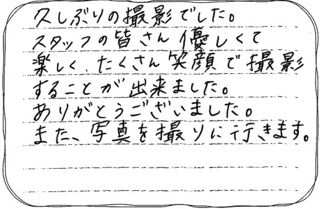 久しぶりの撮影でした。
スタッフの皆さん優しくて
楽しく、たくさん笑顔で撮影
することが出来ました。
ありがとうございました。
また、写真を撮りに行きます。